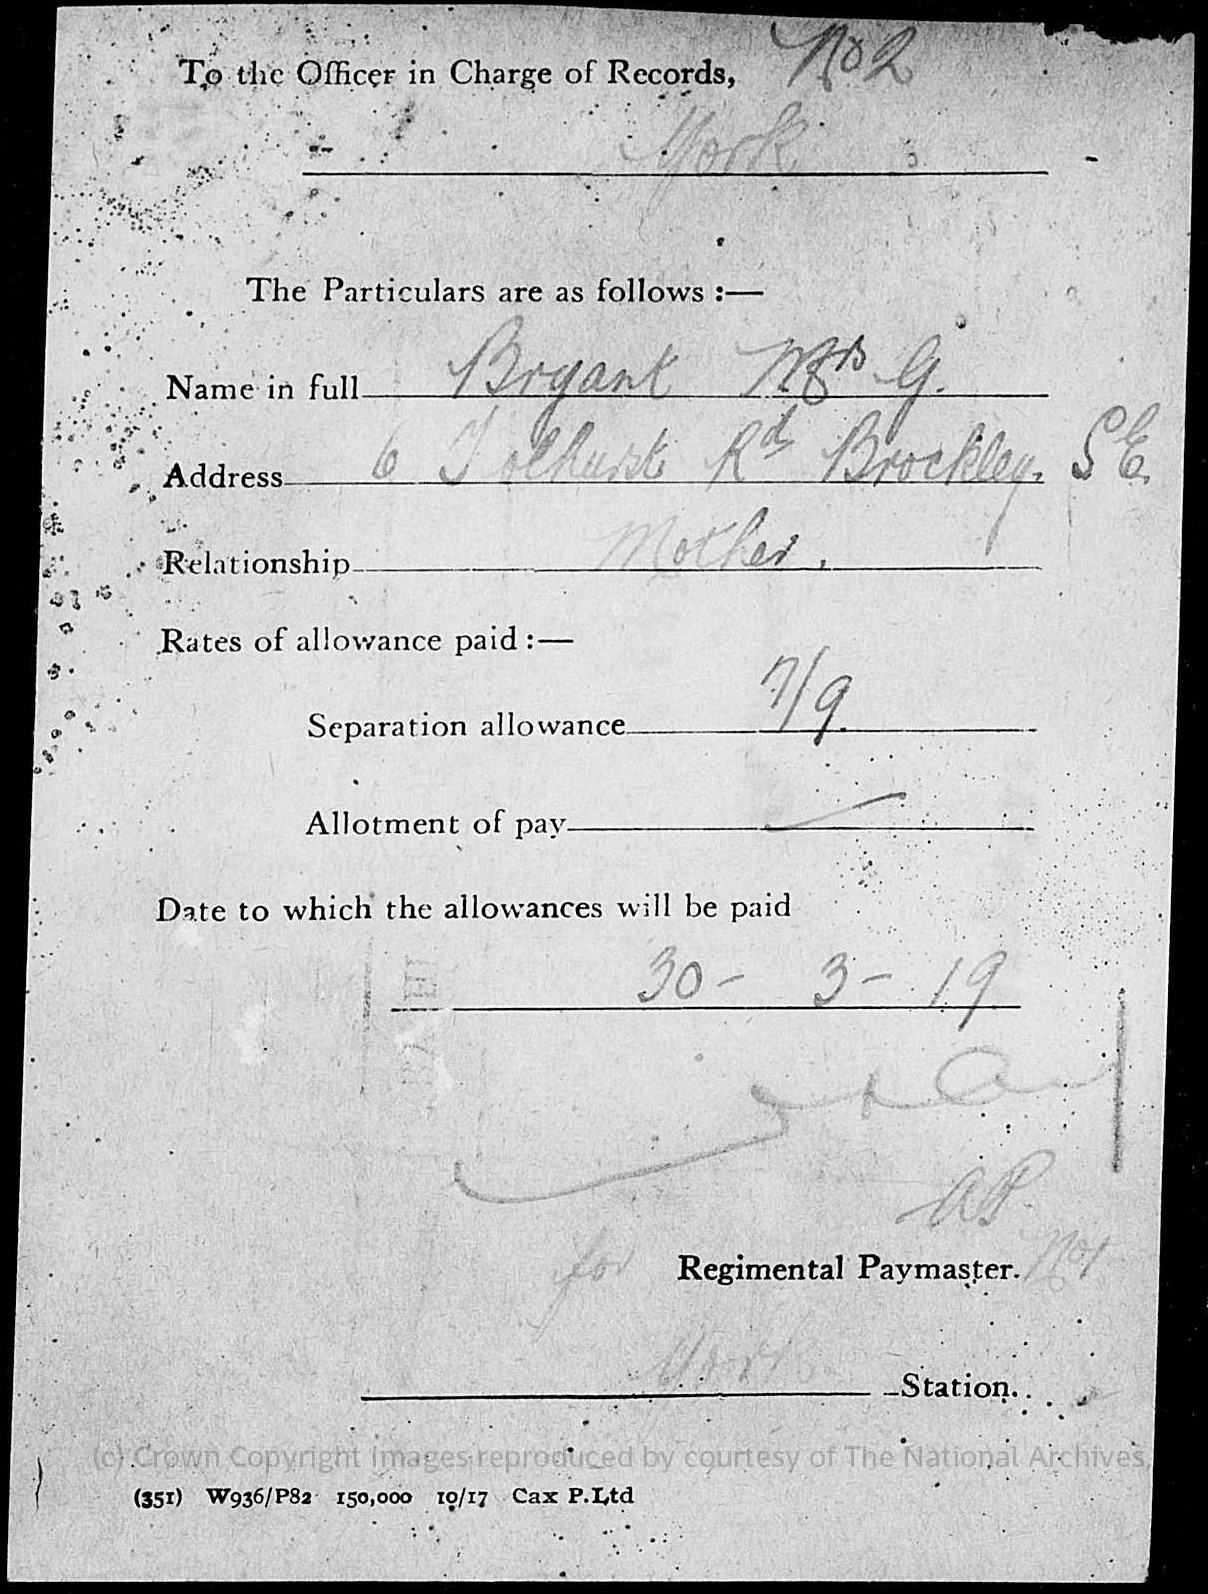 To the Officer in Charge of Records, No 2
York
The Particulars are as follows :—
Name in full Bryant Mrs G.
Address 6 Tolhurst Rd Brockley. S E.
Relationship Mother.
Rates of allowance paid :—
Separation allowance 7/9
Allotment of pay
Date to which the allowances will be paid
30 - 3 - 19
AP
for Regimental Paymaster. No 1
York Station.
(c) Crown Copyright Images reproduced by courtesy of The National Archives,
(351) W936/P82 150,000 10/17 Cax P.Ltd